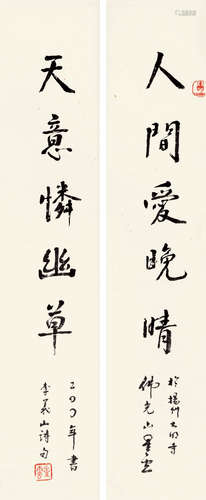 人間愛晚晴
於揚州大明寺
佛光山星雲
天意憐幽草
二〇〇年書
李義山詩句